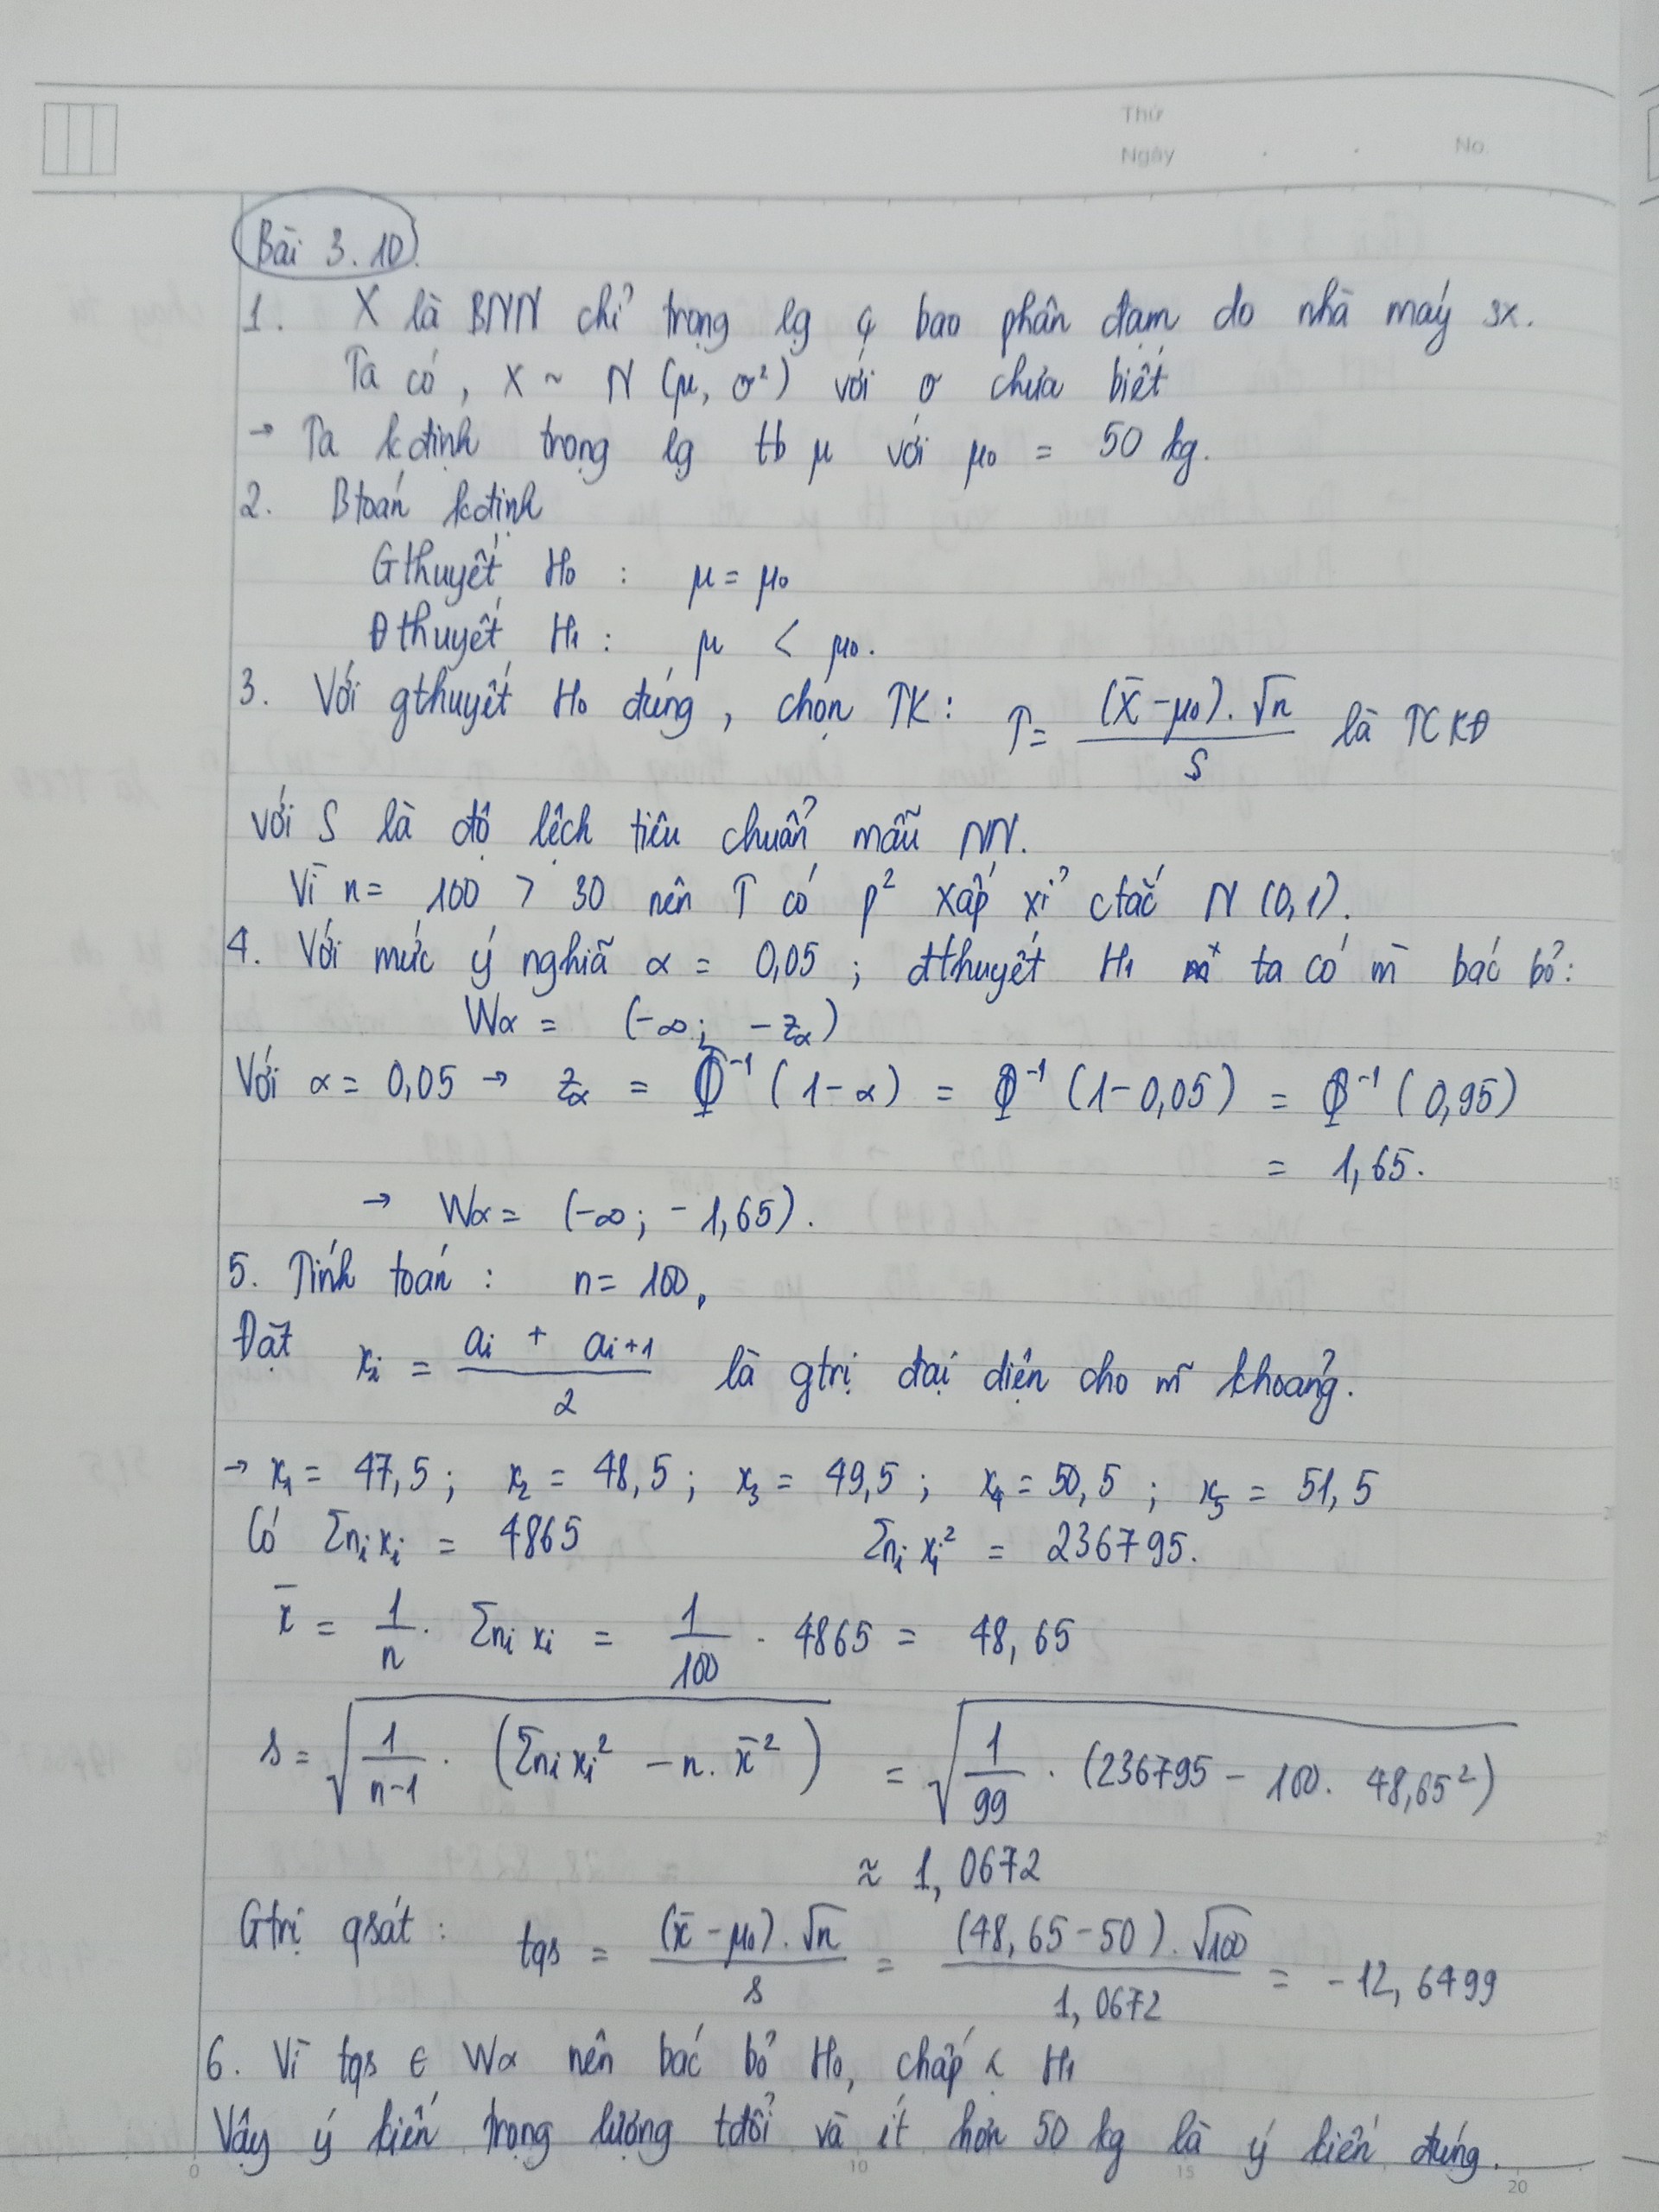 Thứ
Ngày . . No.
Bài 3.10.
1. X là BNN chỉ trọng lg q bao phân đạm do nhà máy sx.
Ta có, X ~ N (μ, σ²) với σ chưa biết
→ Ta kđịnh trọng lg tb μ với μ₀ = 50 kg.
2. Btoán kđịnh
Gthuyết H₀ : μ = μ₀
Đthuyết H₁ : μ < μ₀.
3. Với gthuyết H₀ đúng, chọn TK: T = (X̄ - μ₀).√n / S là TCKĐ
với S là độ lệch tiêu chuẩn mẫu NN.
Vì n = 100 > 30 nên T có p² xấp xỉ ctắc N (0,1).
4. Với mức ý nghĩa α = 0,05 ; đthuyết H₁ ta có m̀ bác bỏ:
Wα = (-∞; -zα)
Với α = 0,05 → zα = Φ⁻¹ (1-α) = Φ⁻¹ (1-0,05) = Φ⁻¹ (0,95)
= 1,65.
→ Wα = (-∞; -1,65).
5. Tính toán : n = 100,
Đặt xᵢ = (aᵢ + aᵢ₊₁) / 2 là gtrị đại diện cho m̃ khoảng.
→ x₁ = 47,5 ; x₂ = 48,5 ; x₃ = 49,5 ; x₄ = 50,5 ; x₅ = 51,5
Có Σnᵢxᵢ = 4865 Σnᵢxᵢ² = 236795.
x̄ = 1/n . Σnᵢxᵢ = 1/100 . 4865 = 48,65
s = √(1/(n-1) . (Σnᵢxᵢ² - n.x̄²)) = √(1/99 . (236795 - 100. 48,65²))
≈ 1,0672
Gtrị qsát : tqs = (x̄ - μ₀).√n / s = (48,65 - 50).√100 / 1,0672 = -12,6499
6. Vì tqs ∈ Wα nên bác bỏ H₀, chấp H₁
Vậy ý kiến trọng lượng tđổi và ít hơn 50 kg là ý kiến đúng.
0 10 15 20